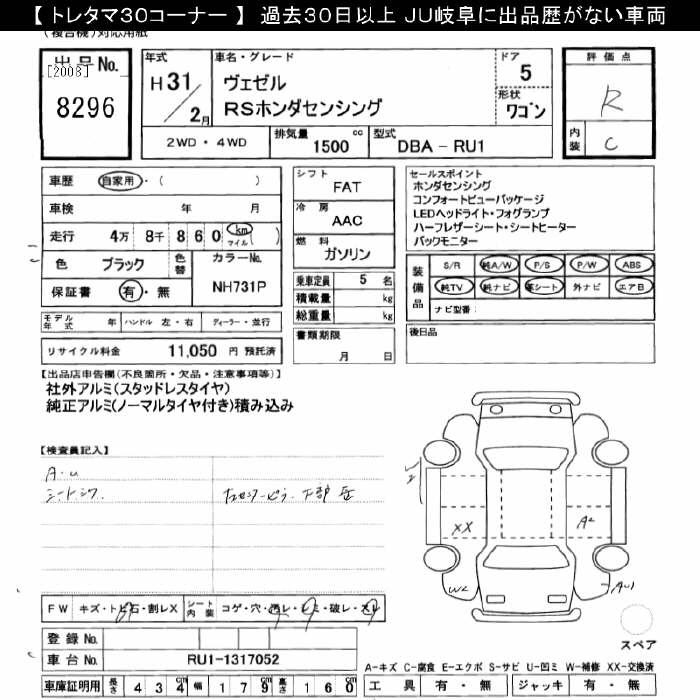 【 トレタマ30コーナー 】 過去30日以上 JU岐阜に出品歴がない車両
(複合機)対応用紙
出品No.
[2008]
8296
年式
H31/2月
車名・グレード
ヴェゼル
RSホンダセンシング
ドア
5
形状
ワゴン
2WD・4WD
排気量
1500 cc
型式
DBA - RU1
評価点
R
内装
C
車歴 自家用・( )
車検 年 月
走行 4万 8千 8 6 0 km マイル ( )
色 ブラック 色替 カラーNo.
保証書 有・無 NH731P
シフト
FAT
冷房
AAC
燃料
ガソリン
乗車定員 5 名
積載量 kg
総重量 kg
書類期限
月 日
セールスポイント
ホンダセンシング
コンフォートビューパッケージ
LEDヘッドライト・フォグランプ
ハーフレザーシート・シートヒーター
バックモニター
装備品
S/R 純A/W P/S P/W ABS
純TV 純ナビ 革シート 外ナビ エアB
ナビ型番:
後日品
モデル年式 年 ハンドル 左・右 ディーラー・並行
リサイクル料金 11,050 円 預託済
【出品店申告欄(不良箇所・欠品・注意事項等)】
社外アルミ(スタッドレスタイヤ)
純正アルミ(ノーマルタイヤ付き)積み込み
【検査員記入】
A・U
シートシワ
XX
A2
W2
AU1
FW キズ・トビ石・割レX シート内装 コゲ・穴・汚レ・シミ・破レ・スレ
登録No.
車台No. RU1-1317052
車庫証明用 長さ 4 3 4 cm 幅 1 7 9 cm 高さ 1 6 0 cm
スペア
A-キズ C-腐食 E-エクボ S-サビ U-凹ミ W-補修 XX-交換済
工具 有・無 ジャッキ 有・無